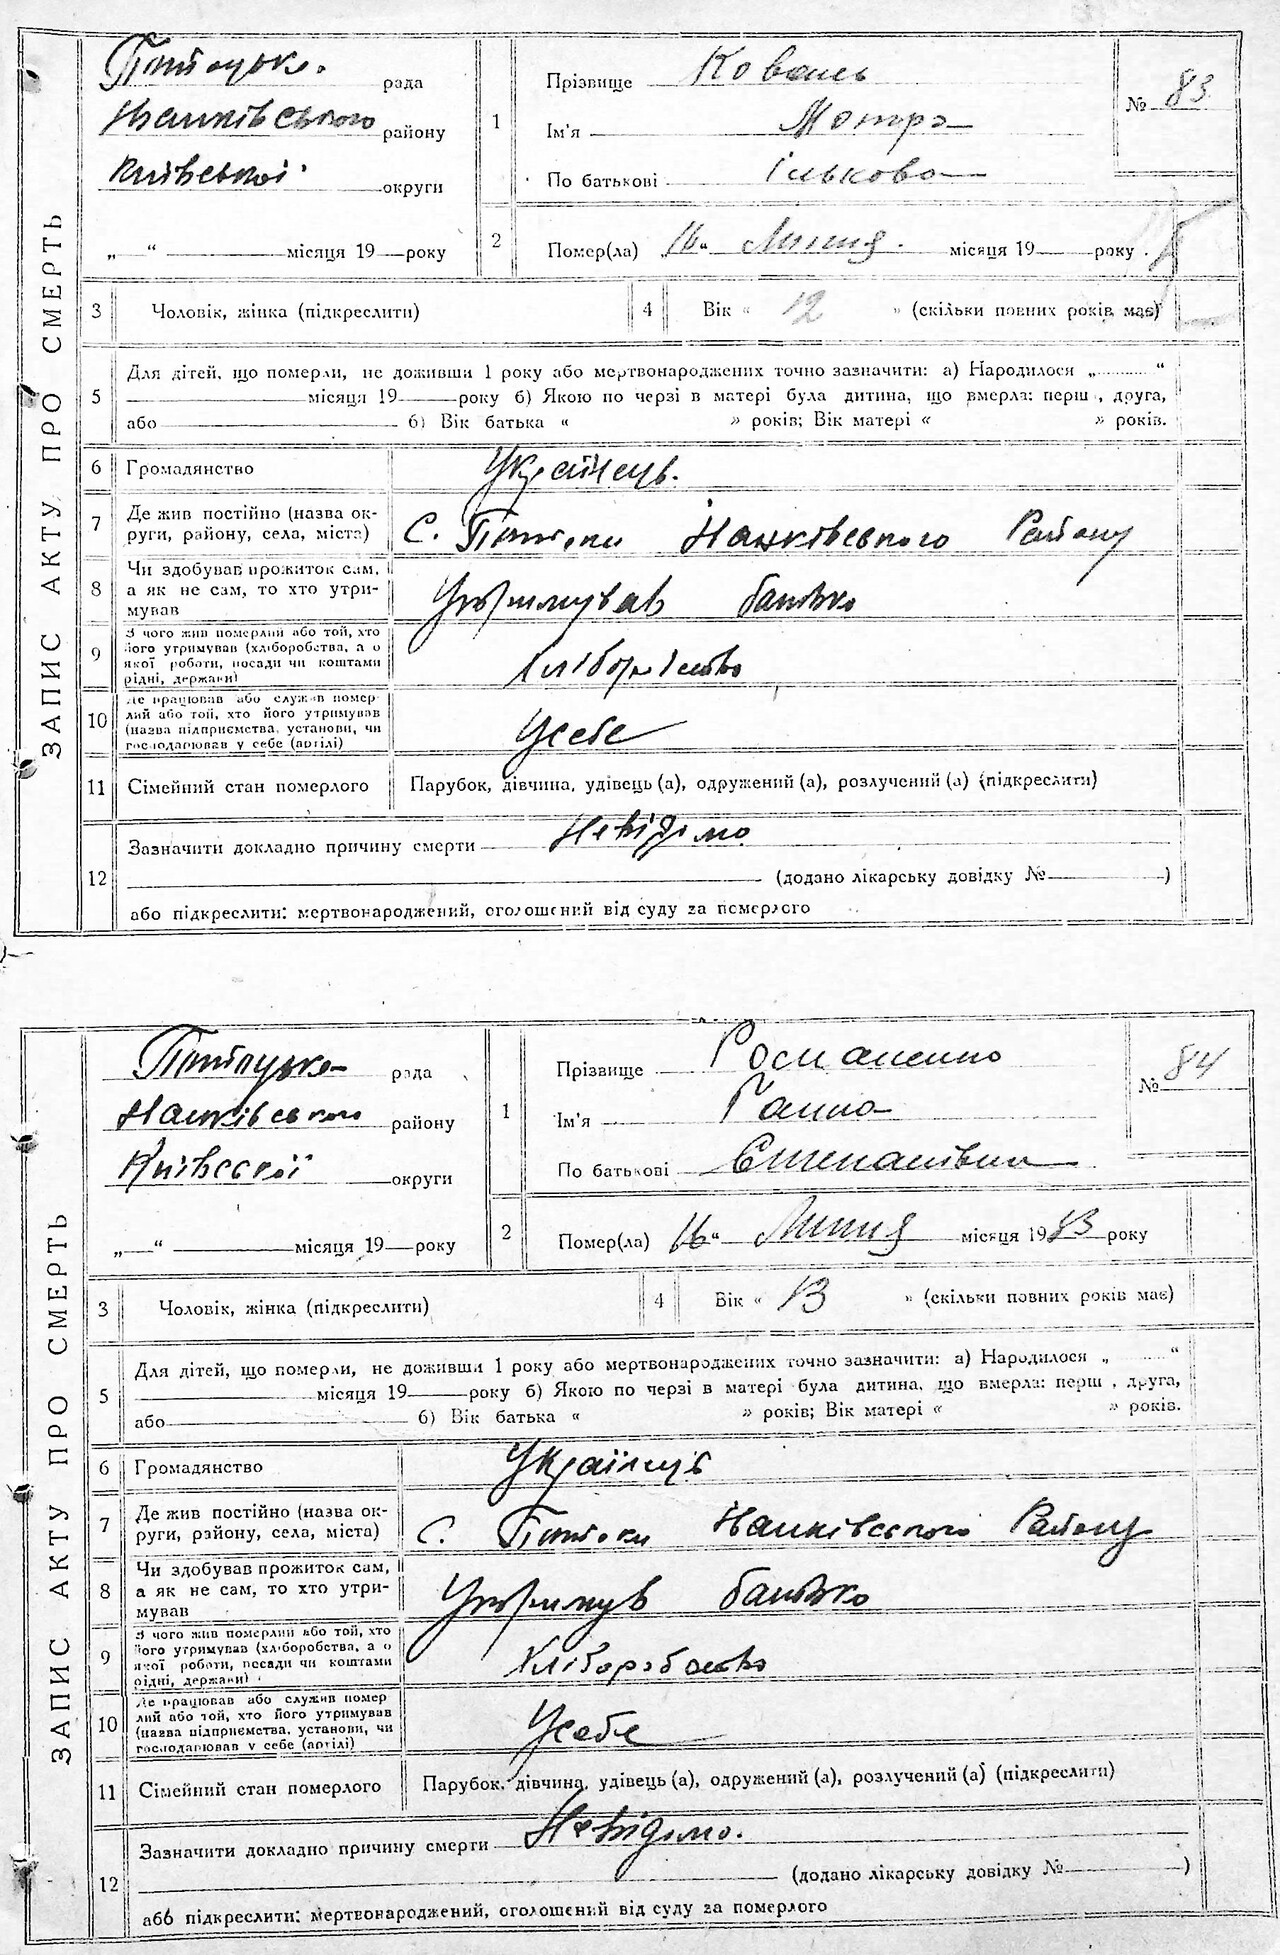 ЗАПИС АКТУ ПРО СМЕРТЬ
рада
району
Київської округи
„ “ місяця 19 року
1
Прізвище Коваль
Ім'я Мотря
По батькові Ількова
№ 83
2
Помер(ла) „16“ Липня місяця 19 року
3
Чоловік, жінка (підкреслити)
4
Вік « 12 » (скільки повних років має)
5
Для дітей, що померли, не доживши 1 року або мертвонароджених точно зазначити: а) Народилося „ “
місяця 19 року б) Якою по черзі в матері була дитина, що вмерла: перш , друга,
або б) Вік батька « » років; Вік матері « » років.
6
Громадянство Українець.
7
Де жив постійно (назва ок-
руги, району, села, міста)
С. Району
8
Чи здобував прожиток сам,
а як не сам, то хто утри-
мував
Утримував батько
9
З чого жив померлий або той, хто
його утримував (хліборобства, а о
якої роботи, посади чи коштами
рідні, держави)
10
Де працював або служив помер
лий або той, хто його утримував
(назва підприємства, установи, чи
господарював у себе (артілі)
Усебе
11
Сімейний стан померлого
Парубок, дівчина, удівець (а), одружений (а), розлучений (а) (підкреслити)
12
Зазначити докладно причину смерти Невідімо
(додано лікарську довідку № )
або підкреслити: мертвонароджений, оголошений від суду за померлого
ЗАПИС АКТУ ПРО СМЕРТЬ
рада
району
Київської округи
„ “ місяця 19 року
1
Прізвище Романенко
Ім'я Ганна
По батькові Степанівна
№ 84
2
Помер(ла) „16“ Липня місяця 1933 року
3
Чоловік, жінка (підкреслити)
4
Вік « 13 » (скільки повних років має)
5
Для дітей, що померли, не доживши 1 року або мертвонароджених точно зазначити: а) Народилося „ “
місяця 19 року б) Якою по черзі в матері була дитина, що вмерла: перш , друга,
або б) Вік батька « » років; Вік матері « » років.
6
Громадянство Українець
7
Де жив постійно (назва ок-
руги, району, села, міста)
С. Району
8
Чи здобував прожиток сам,
а як не сам, то хто утри-
мував
Утримув батько
9
З чого жив померлий або той, хто
його утримував (хліборобства, а о
якої роботи, посади чи коштами
рідні, держави)
Хліборобство
10
Де працював або служив помер
лий або той, хто його утримував
(назва підприємства, установи, чи
господарював у себе (артілі)
Усебе
11
Сімейний стан померлого
Парубок, дівчина, удівець (а), одружений (а), розлучений (а) (підкреслити)
12
Зазначити докладно причину смерти Невідімо.
(додано лікарську довідку № )
або підкреслити: мертвонароджений, оголошений від суду за померлого